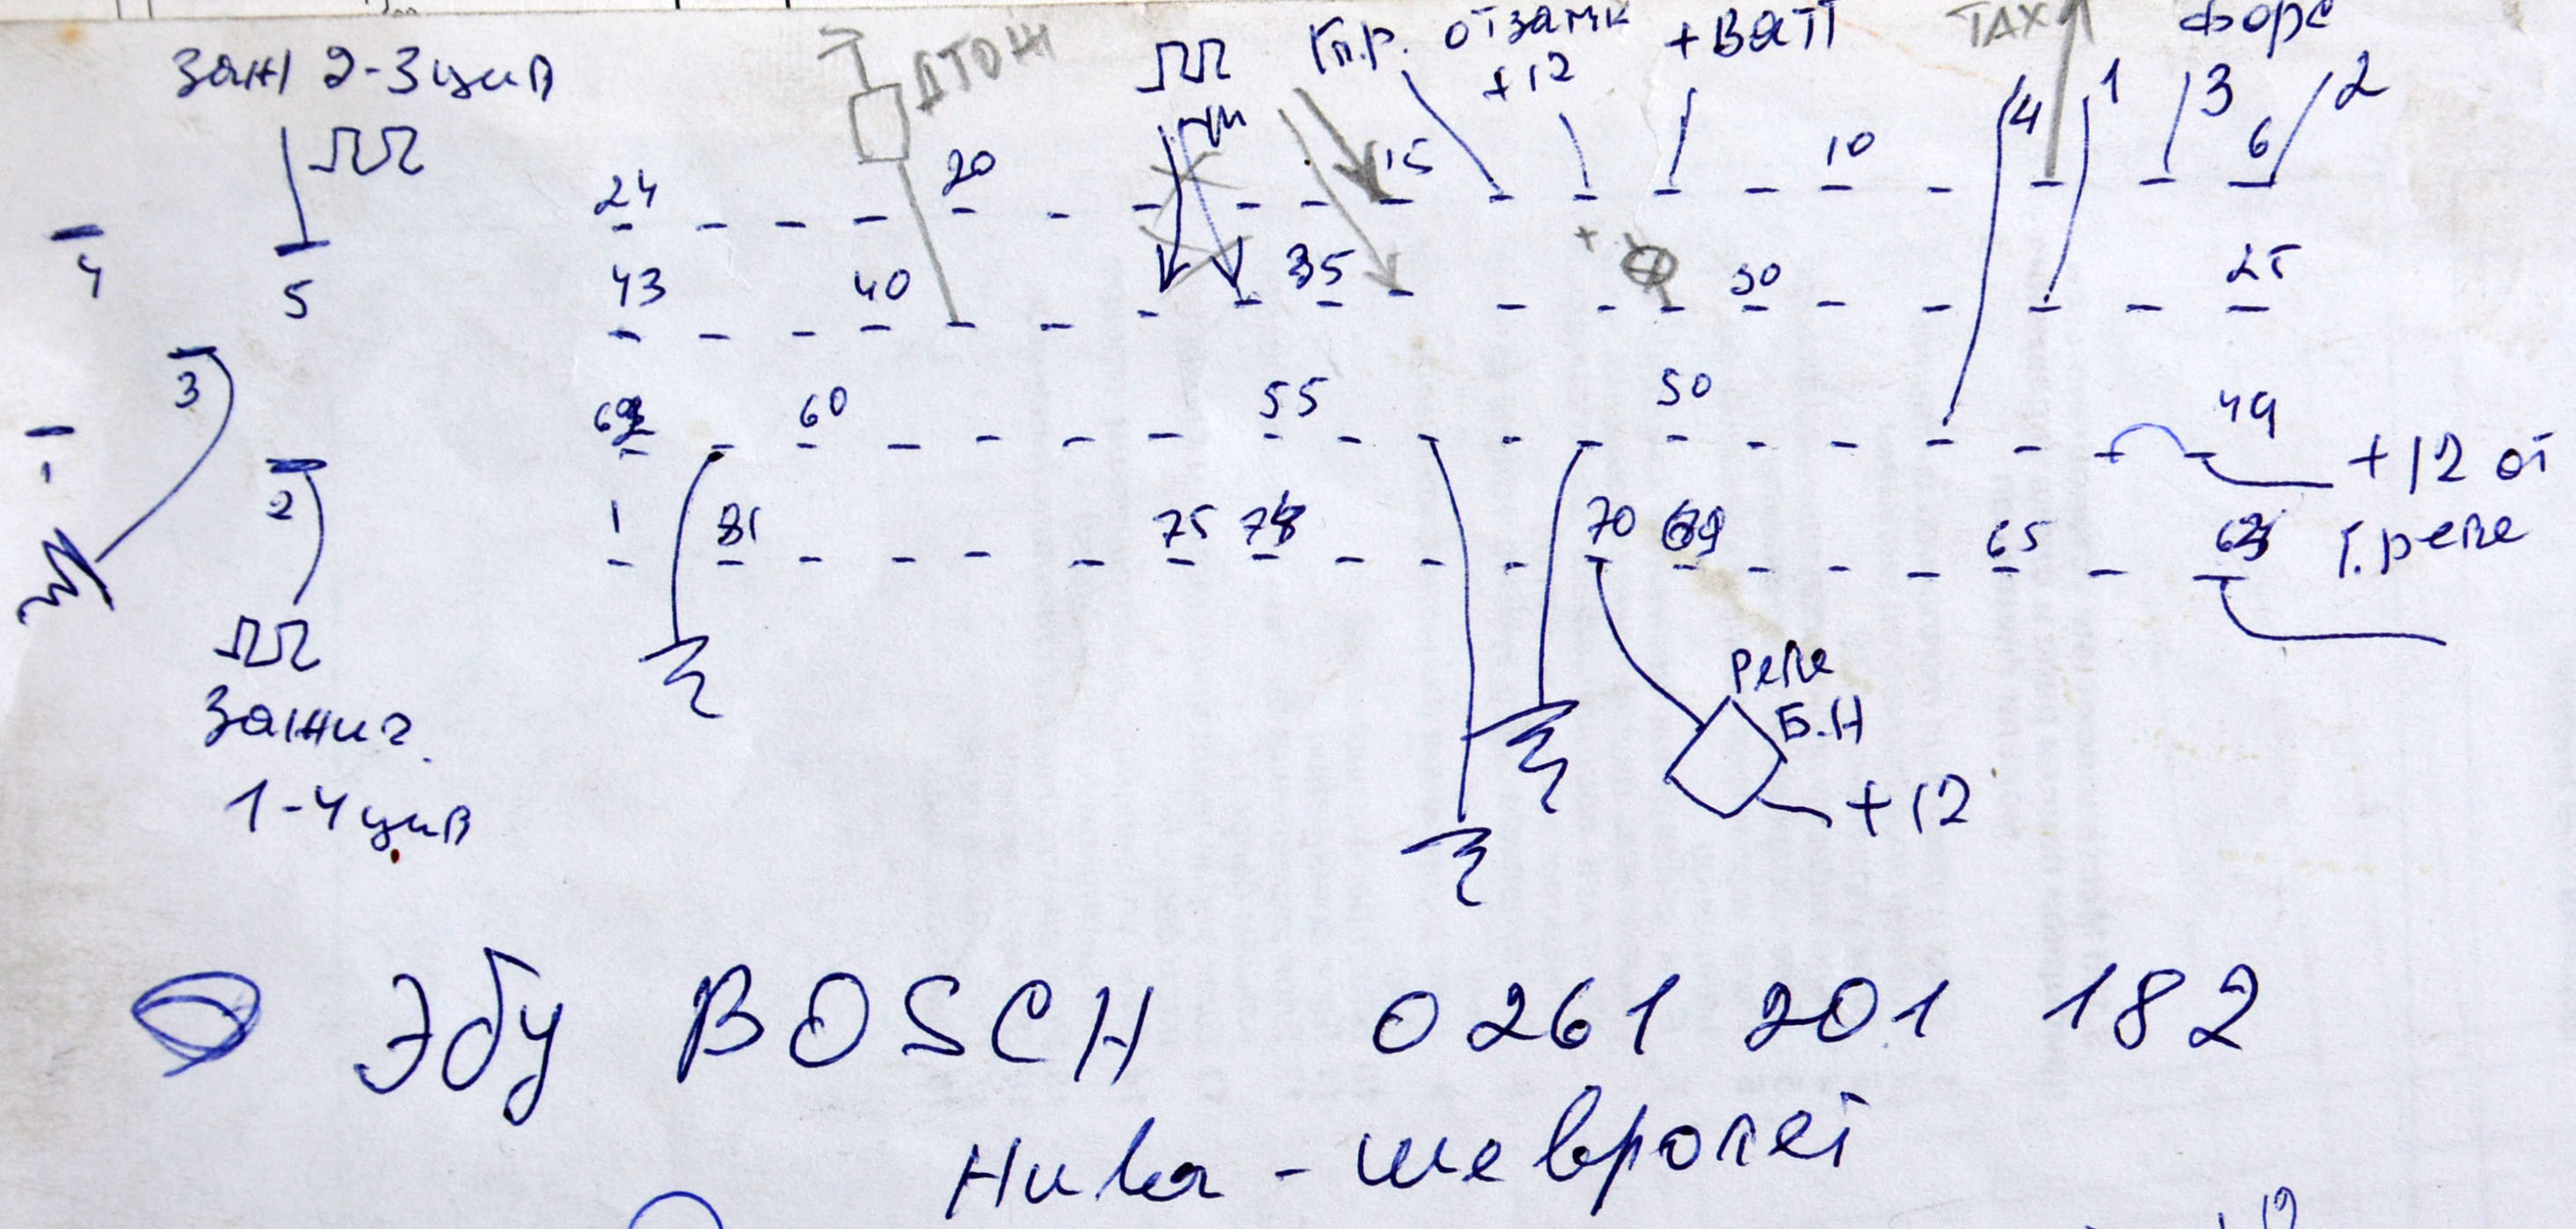 Г.р. от замк +ВАТТ ТАХ форс
Заж 2-3 цил ДТОЖ +12
4 1 3 2
24 20 15 10 6
4 5 43 40 35 30 25
3 60 55 50 49
+12 от
1 2 1 81 75 70 69 65 63 Г.реле
реле
Б.Н
Зажиг.
+12
1-4 цил
Эбу BOSCH 0261 201 182
Нива - шевролет